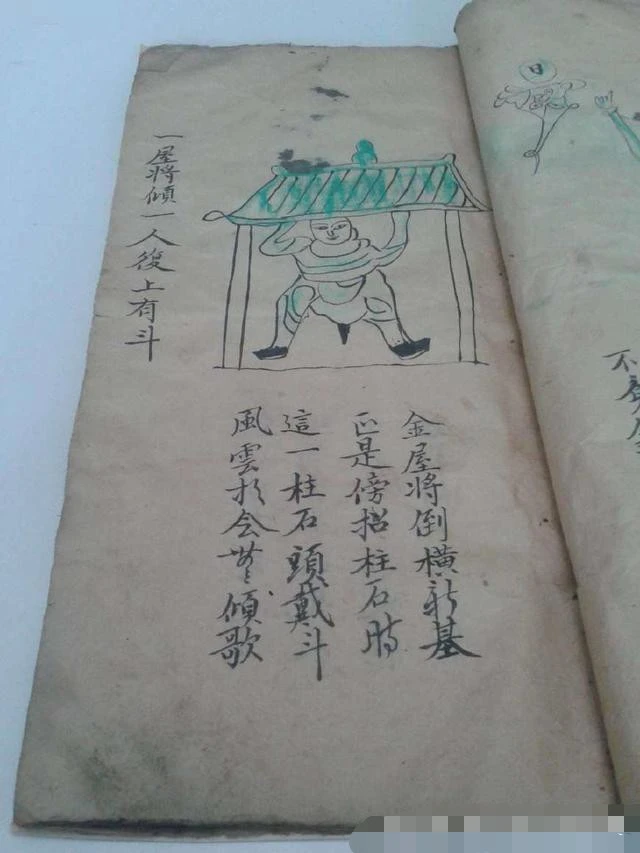 日
不
金屋將倒橫新基
正是傍招柱石時
這一柱石頭戴斗
風雲於会傾歌
一屋將傾一人復上有斗